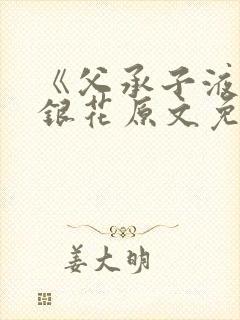 《父承子液
銀花原文免
姜大明